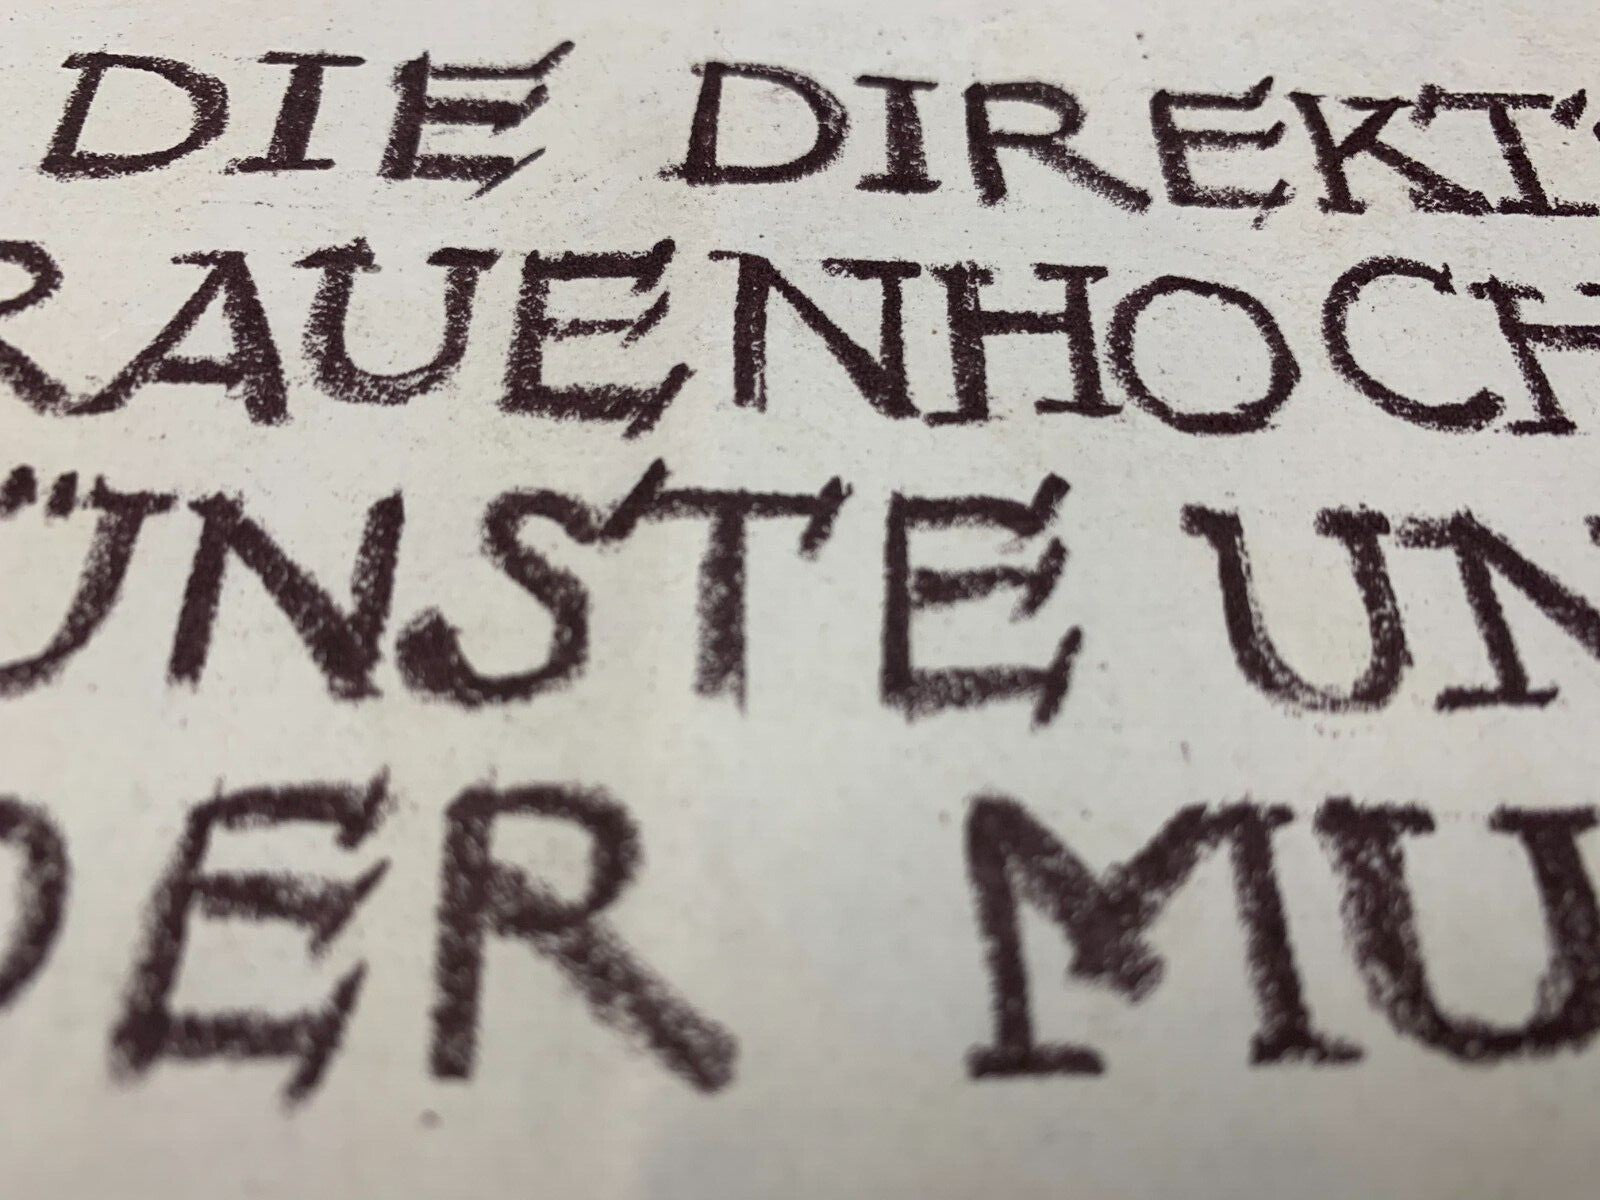 DIE DIREKT
RAUENHOCH
ÜNSTE UN
DER MU